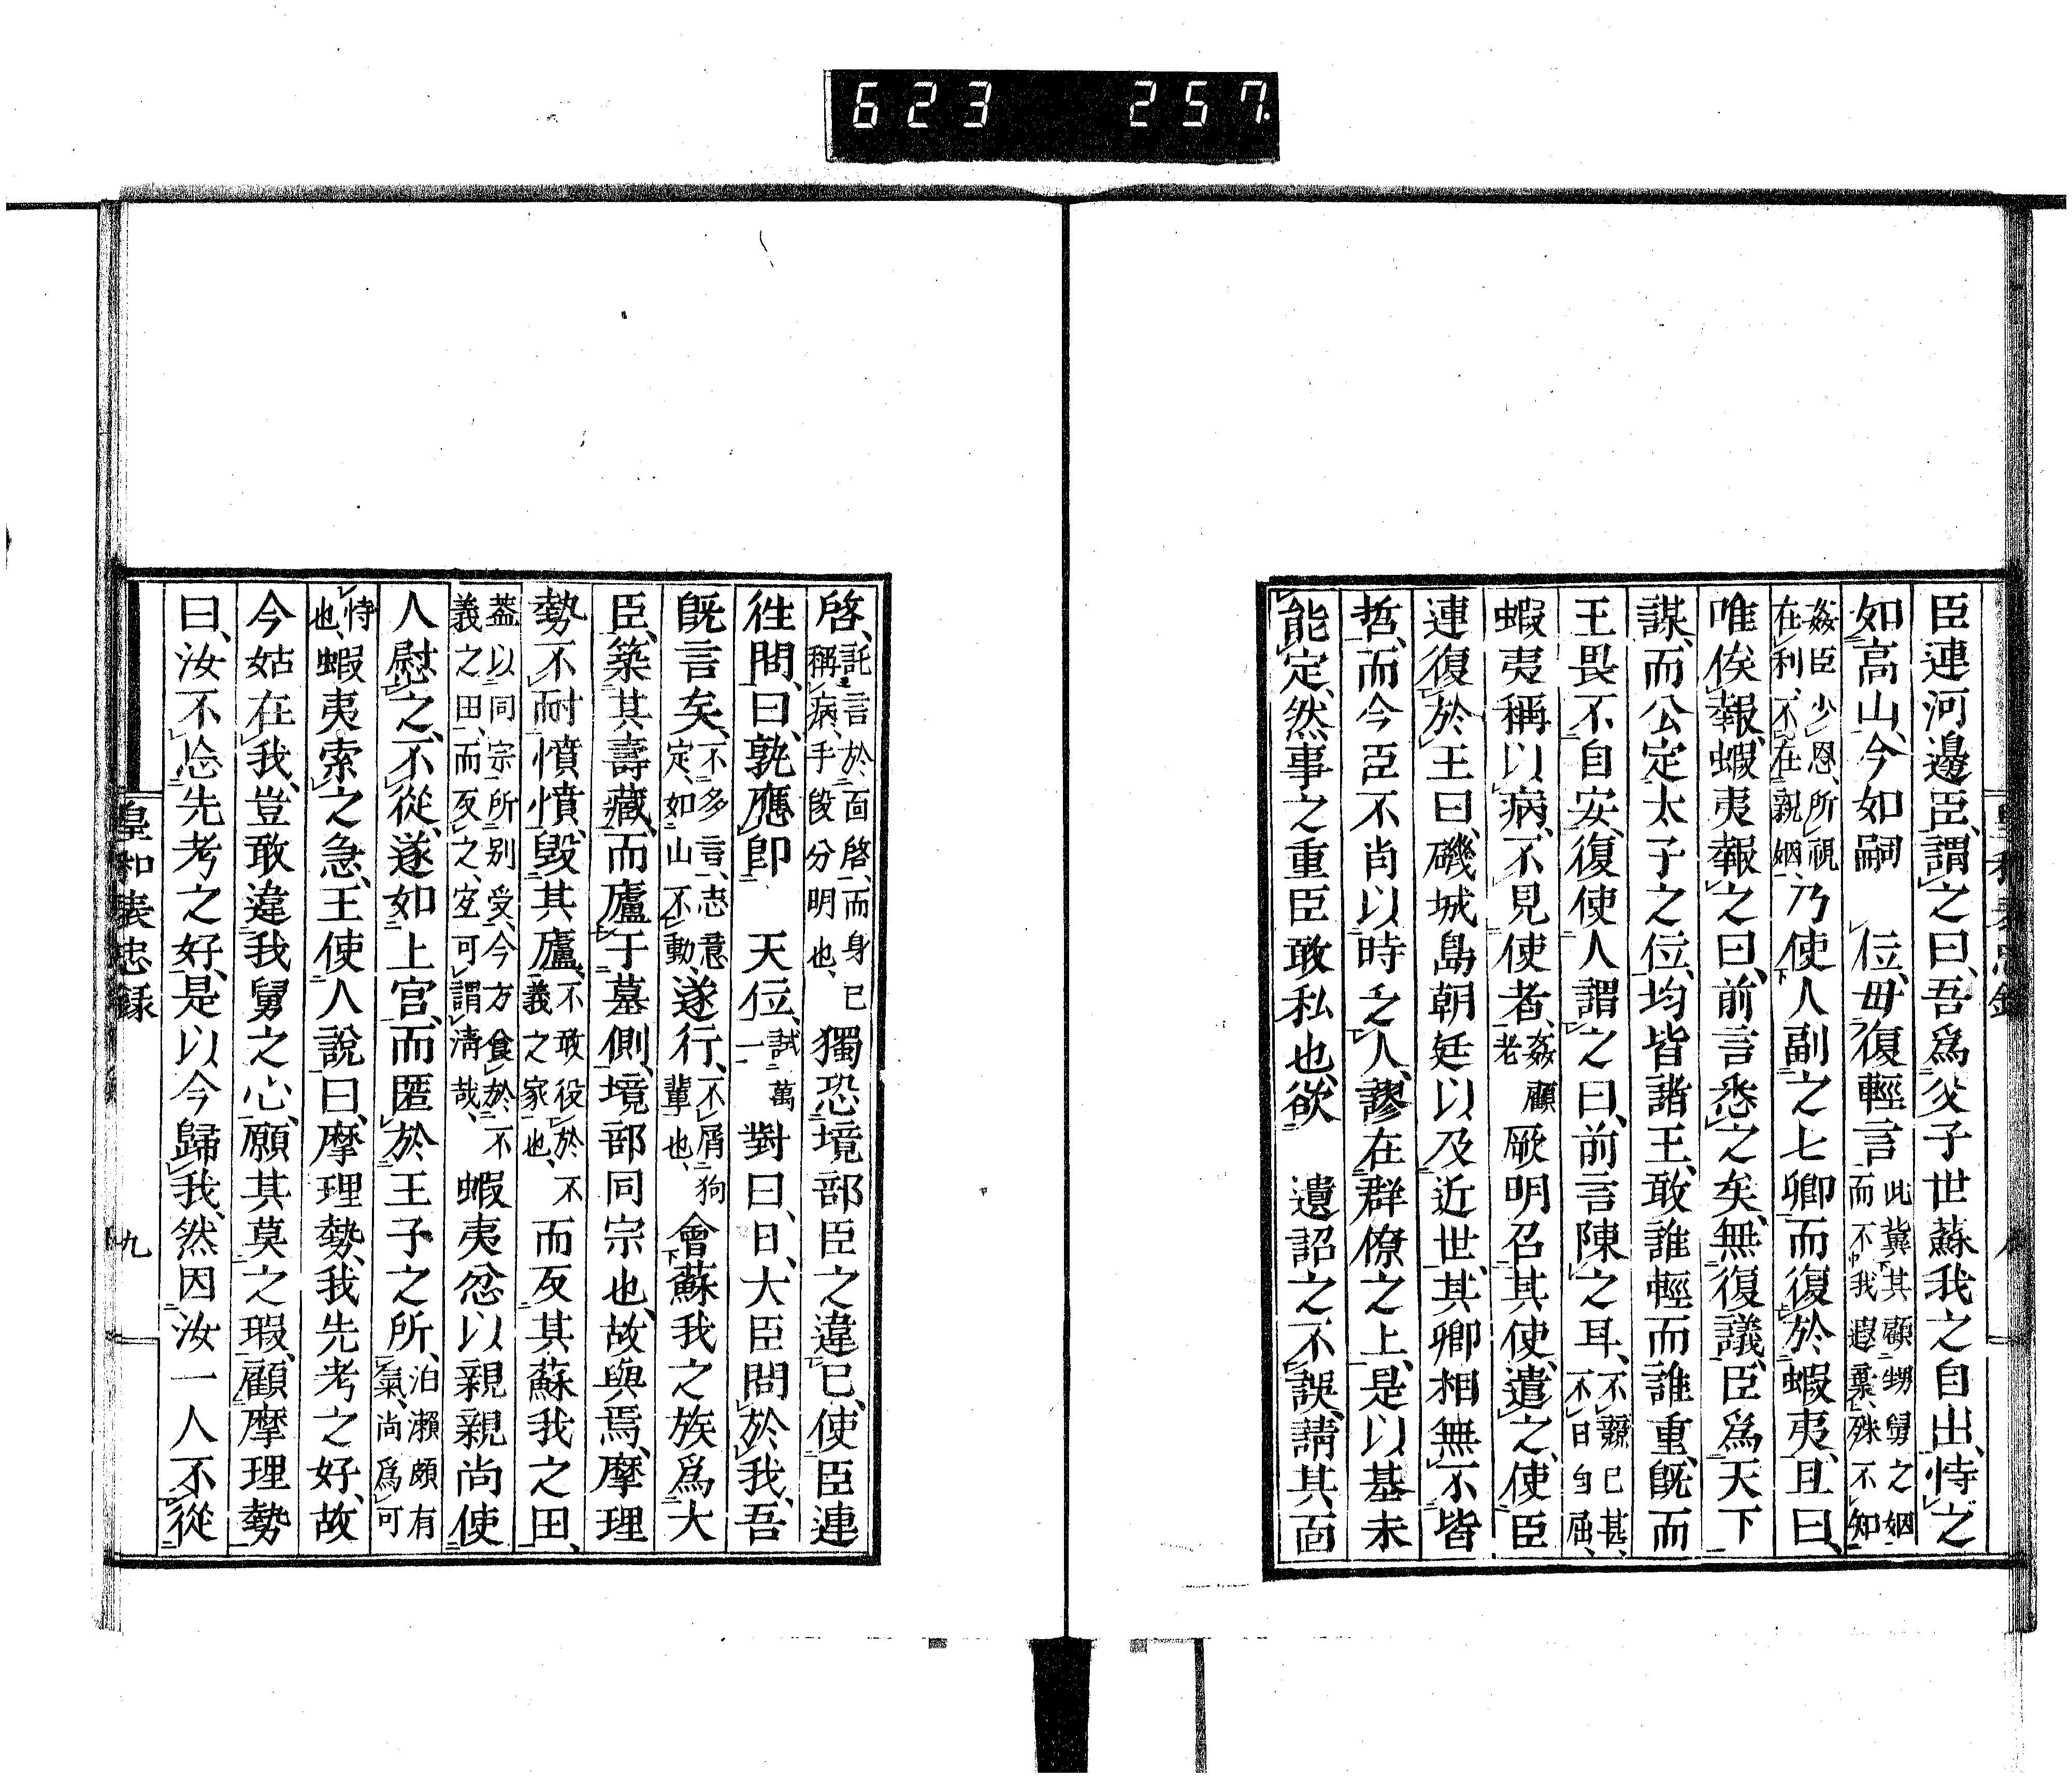 623 257
臣連河邊臣、謂之曰、吾爲父子世蘇我之自出、恃之
如高山、今如嗣 位、毋復輕言此冀其顧甥舅之姻而不我遐棄、殊不知
姦臣少恩、所視在利、不在親姻、乃使人副之七卿、而復於蝦夷、且曰、
唯俟報、蝦夷報之曰、前言悉之矣、無復議、臣爲天下
謀、而公定太子之位、均皆諸王、敢誰輕而誰重、既而
王畏不自安、復使人謂之曰、前言陳之耳、不競已甚、不日自屈、
蝦夷稱以病、不見使者、姦顧老 厥明召其使、遣之、使臣
連復於王曰、磯城島朝廷以及近世、其卿相無不皆
哲、而今臣不肖以時之人、謬在群僚之上、是以基未
能定、然事之重臣敢私也、欲 遺詔之不誤、請其面
啓、託言於面啓、而身已稱病、手段分明也、 獨恐境部臣之違已、使臣連
徃問、曰、孰應卽 天位、試一萬 對曰、日、大臣問於我、吾
既言矣、不多言、志意定、如山不動、遂行、不屑狗輩也、 會蘇我之族爲大
臣、築其壽藏、而廬于墓側、境部同宗也、故與焉、摩理
勢不耐憤憤、毀其廬、不敢役於不義之家也、 而反其蘇我之田、
蓋以同宗所别受、今方食於不義之田、而反之、定可謂淸哉、 蝦夷忿以親親尚使
人慰之、不從、遂如上宮、而匿於王子之所、泊瀨頗有氣、尚爲可
恃也、蝦夷索之急、王使人說曰、摩理勢、我先考之好、故
今姑在我、豈敢違我舅之心、願其莫之瑕、顧摩理勢
曰、汝不忘先考之好、是以今歸我、然因汝一人不從
皇和表忠錄
九